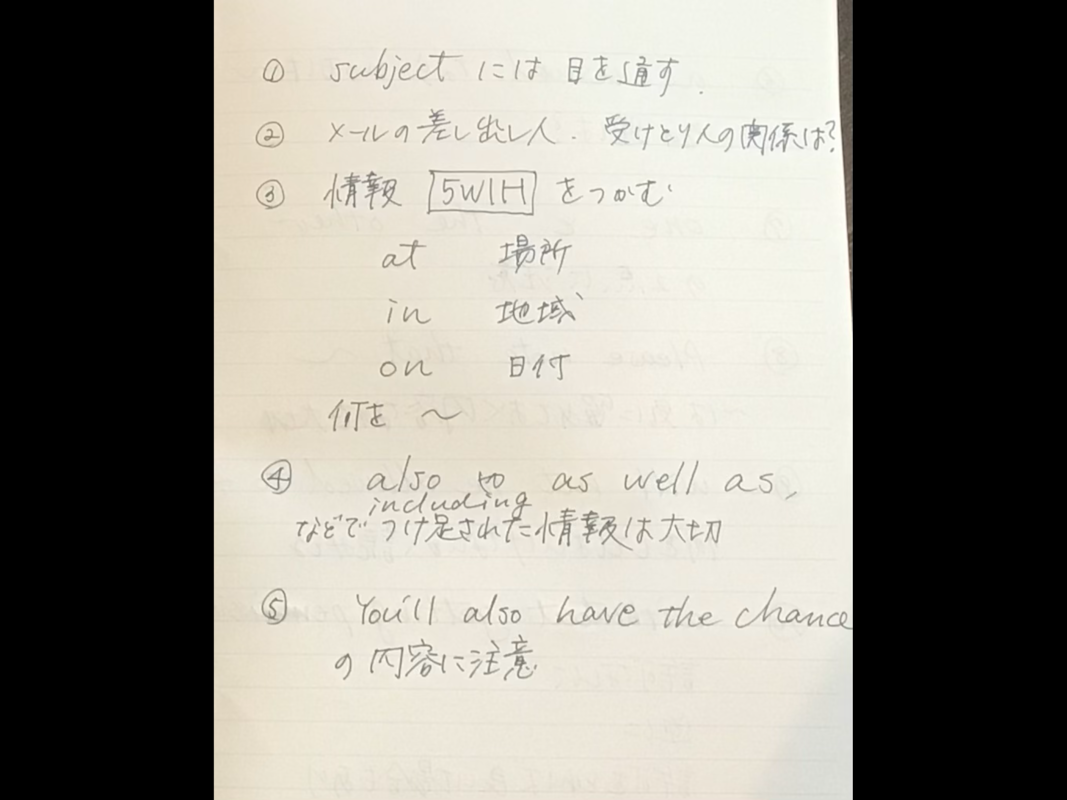 ① subject には 目を通す.
② メールの差し出し人. 受けとり人の関係は?
③ 情報 5W1H をつかむ
at 場所
in 地域
on 日付
何を 〜
④ also や as well as,
including
などで つけ足された情報は大切
⑤ You'll also have the chance
の 内容に注意